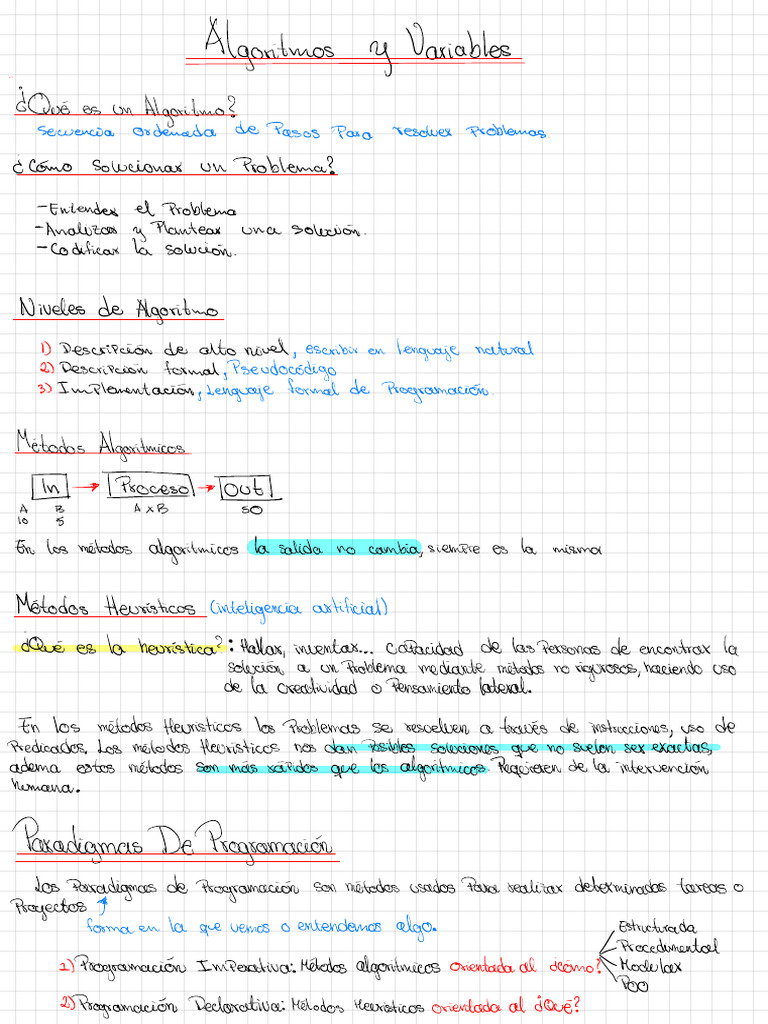 Algoritmos y Variables
¿Qué es un Algoritmo?
Secuencia ordenada de Pasos Para resolver Problemas.
¿Cómo Solucionar un Problema?
- Entender el Problema
- Analizar y Plantear una solución.
- Codificar la solución.
Niveles de Algoritmo
1) Descripción de alto nivel, escribir en lenguaje natural
2) Descripción formal, Pseudocódigo
3) Implementación, Lenguaje formal de Programación.
Métodos Algorítmicos
In → Proceso → Out
A B A x B 50
10 5
En los métodos algorítmicos la salida no cambia, siempre es la misma
Métodos Heurísticos (inteligencia artificial)
¿Qué es la heurística?: Hallar, inventar... Capacidad de las Personas de encontrar la
solución a un Problema mediante métodos no rigurosos, haciendo uso
de la creatividad o Pensamiento lateral.
En los métodos Heurísticos los Problemas se resuelven a través de instrucciones, uso de
Predicados. Los métodos Heurísticos nos dan Posibles soluciones que no suelen ser exactas,
adema estos métodos son más rápidos que los algorítmicos. Requieren de la intervención
humana.
Paradigmas De Programación
Los Paradigmas de Programación son métodos usados Para realizar determinadas tareas o
Proyectos
forma en la que vemos o entendemos algo.
Estructurada
Procedimental
1) Programación Imperativa: Métodos algorítmicos orientada al ¿cómo? Modular
POO
2) Programación Declarativa: Métodos Heurísticos orientada al ¿Qué?